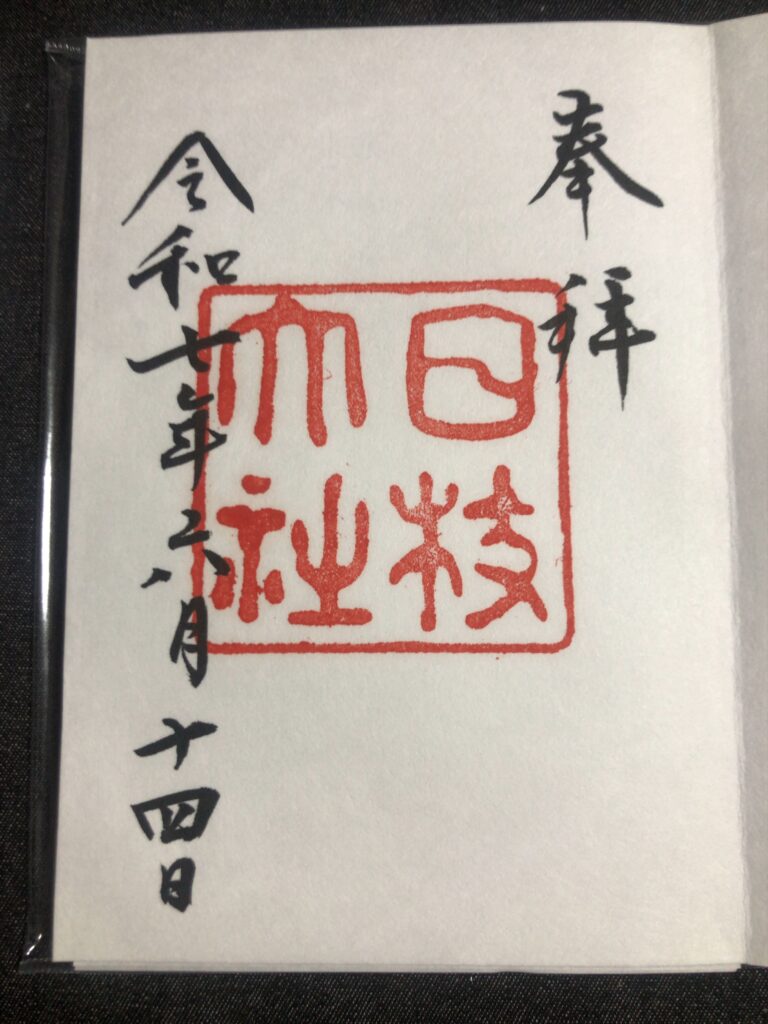 奉拝
日枝
大社
令和七年六月十四日